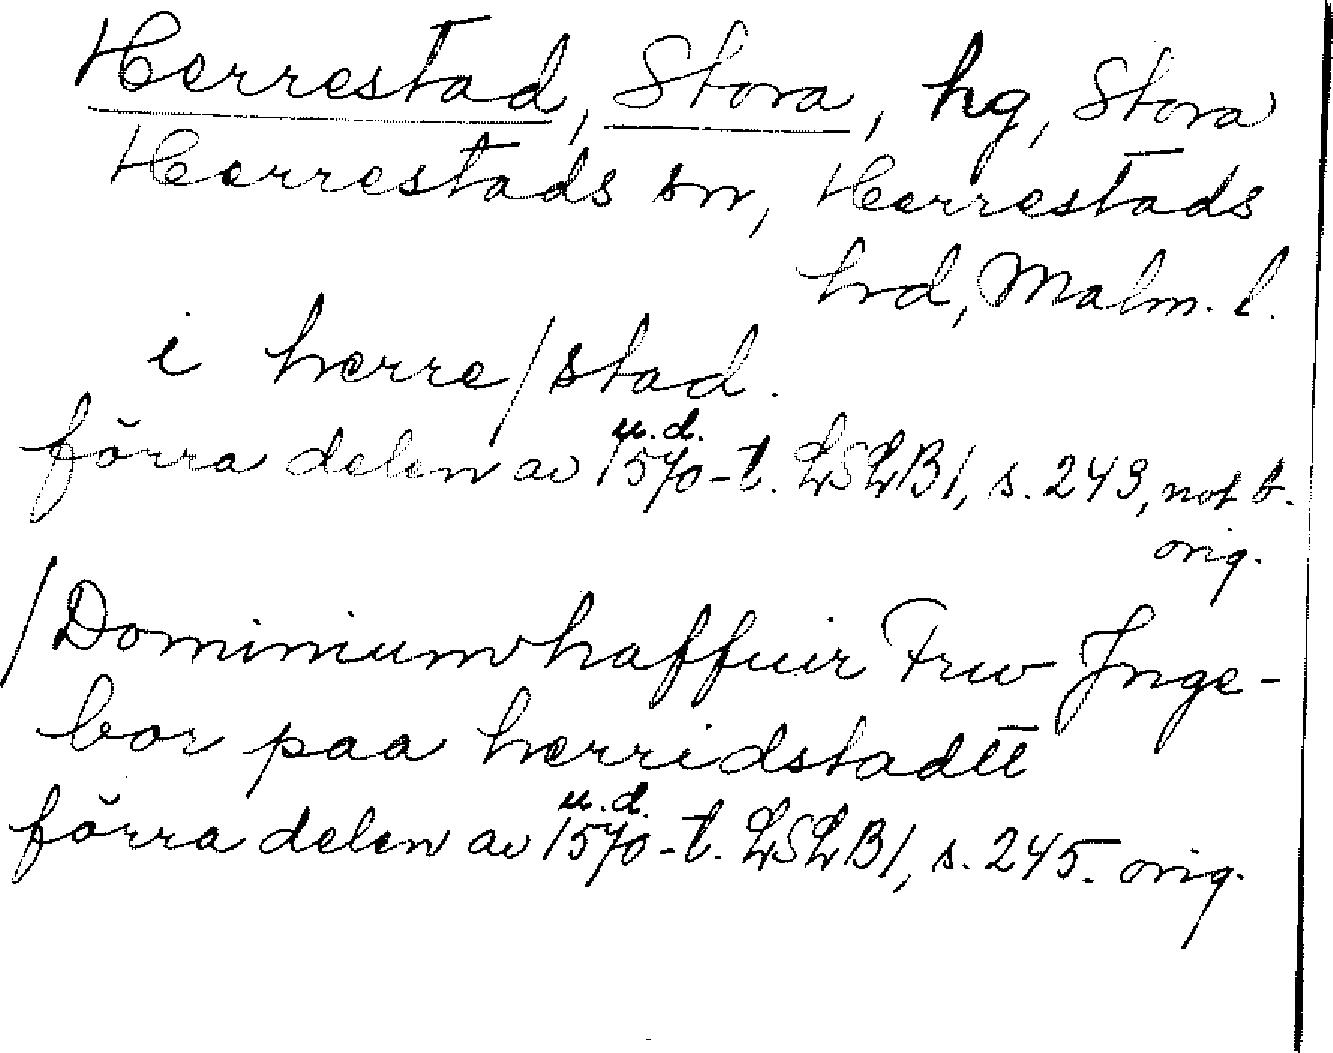 Herrestad, Stora, hg, Stora
Herrestads sn, Herrestads
hrd, Malm. l.
i herre/stad.
u.d.
förra delen av 1570-t. LSLB1, s. 243, not b.
orig.
/Dominium haffuir Frw Jnge-
bor paa herridstadtt
u.d.
förra delen av 1570-t. LSLB1, s. 245. orig.